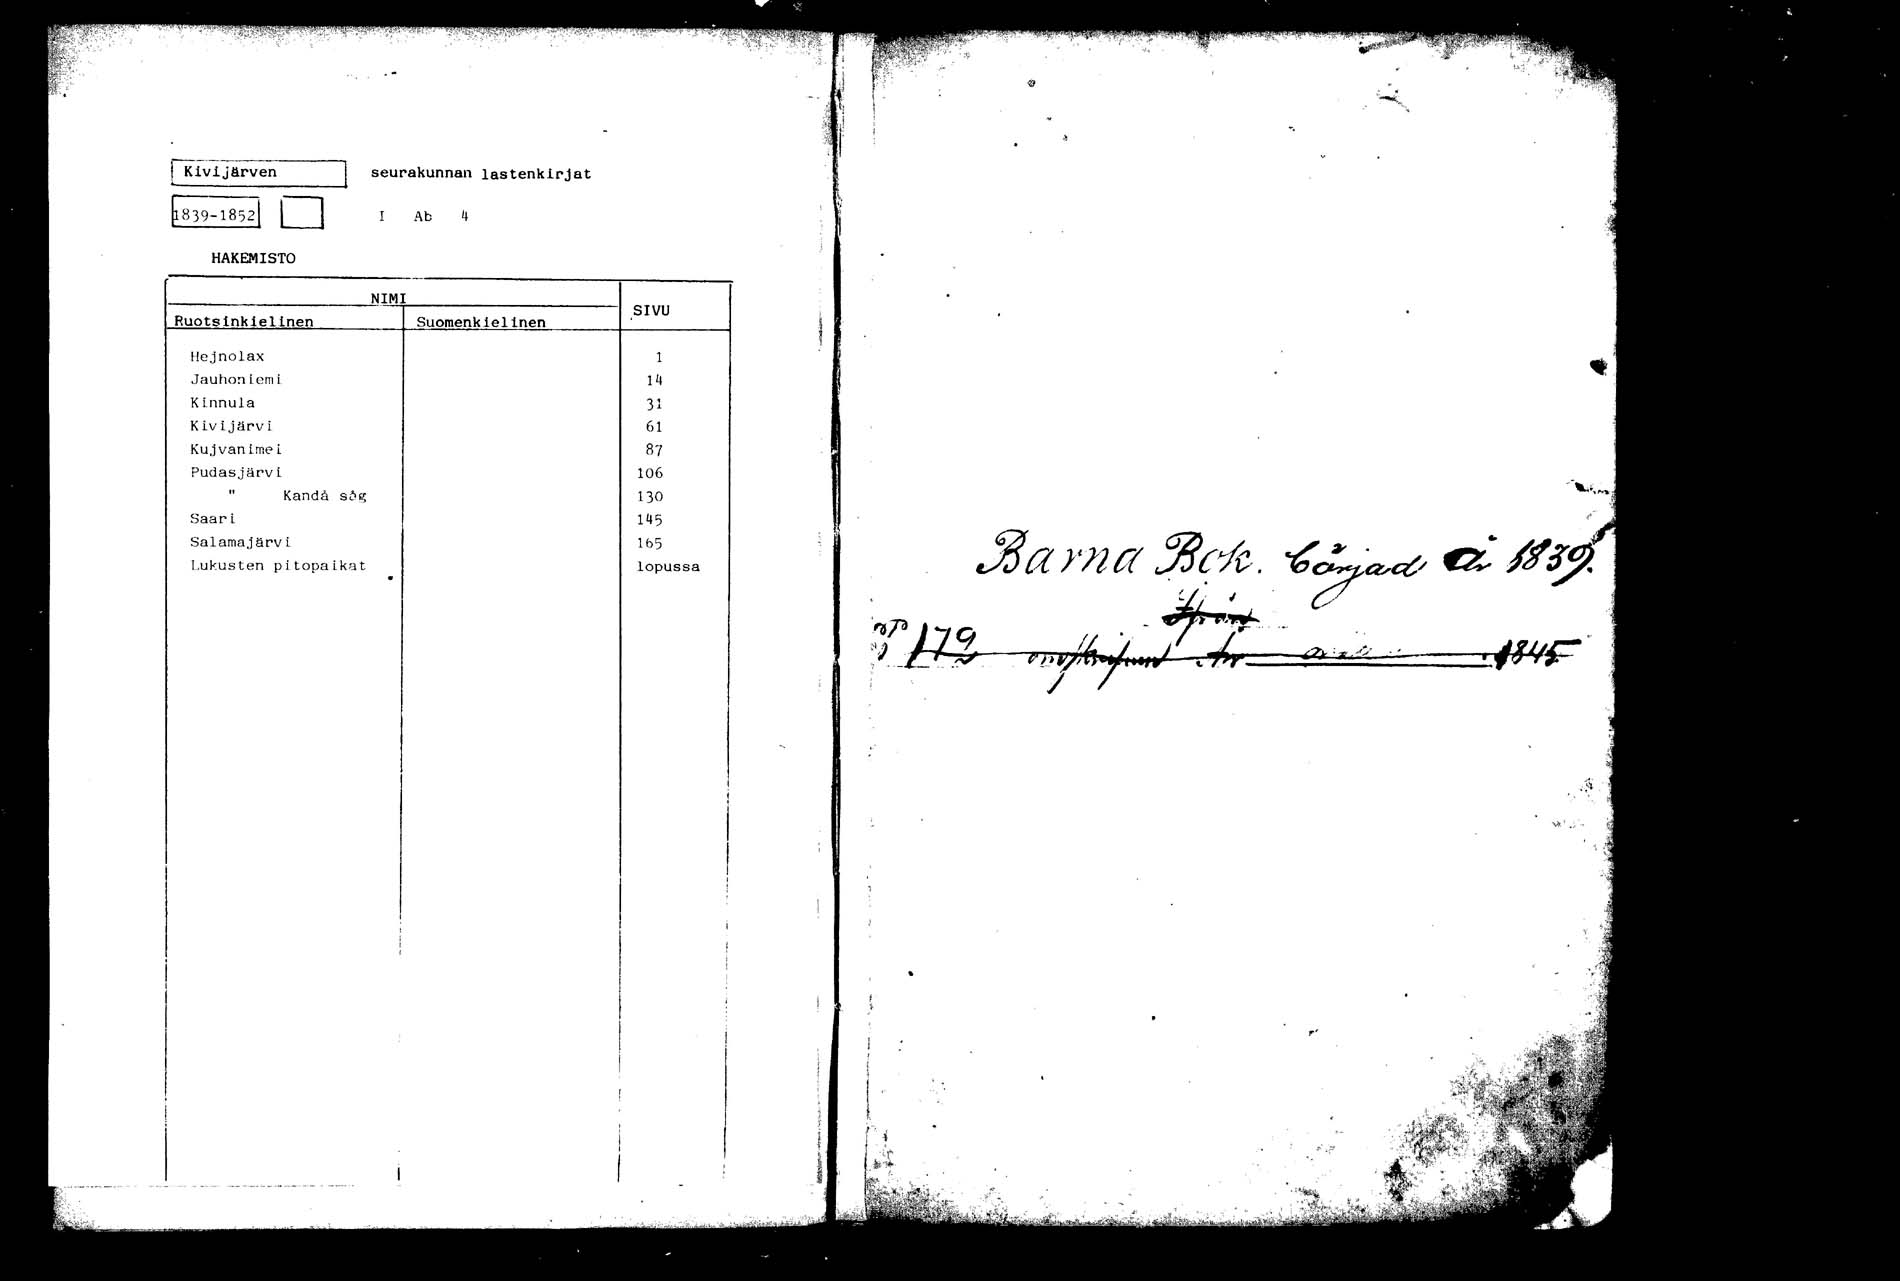 Kivijärven seurakunnan lastenkirjat
1839-1852 I Ab 4
HAKEMISTO
NIMI
SIVU
Ruotsinkielinen Suomenkielinen
Hejnolax 1
Jauhoniemi 14
Kinnula 31
Kivijärvi 61
Kujvanimei 87
Pudasjärvi 106
" Kandå såg 130
Saari 145
Salamajärvi 165
Lukusten pitopaikat lopussa
Barna Bok. börjad År 1839.
179 omskrifven 1845